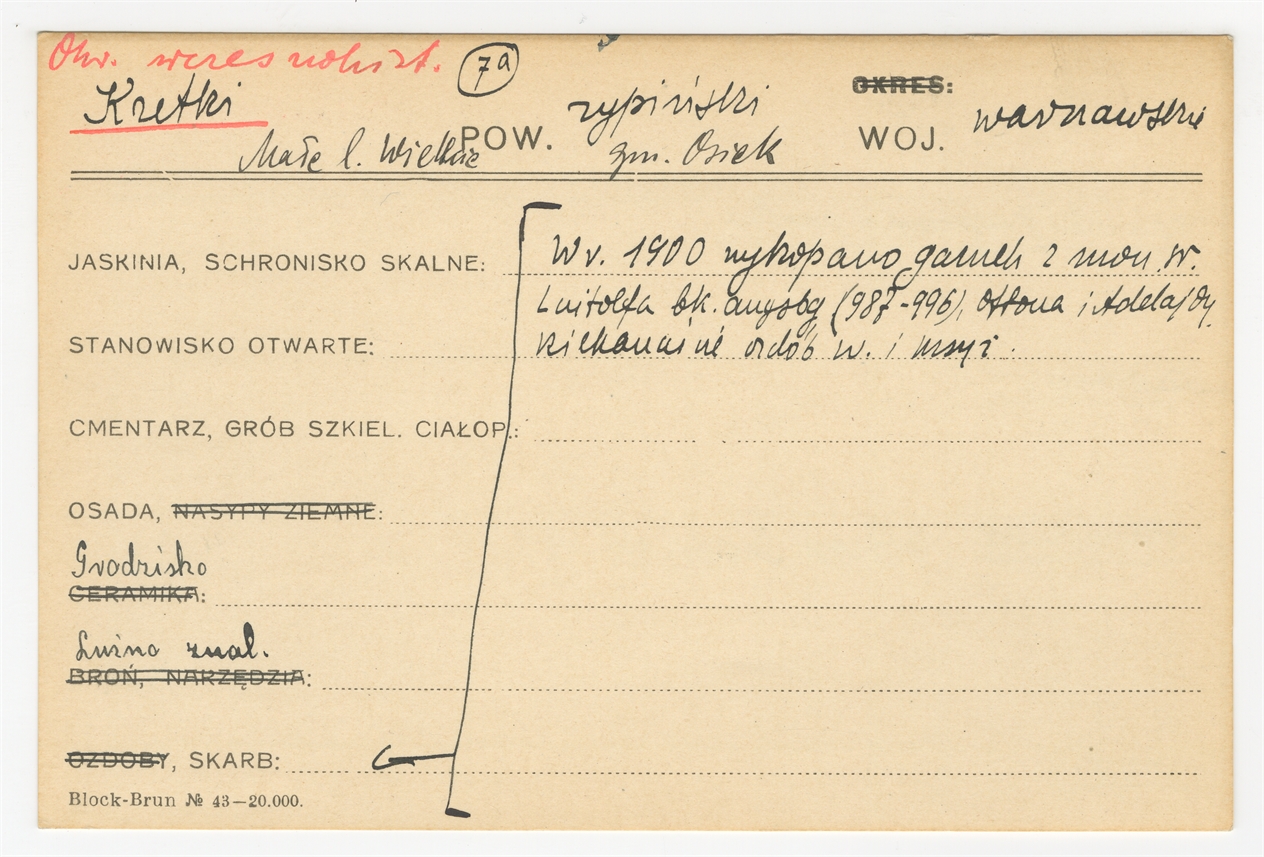 Okr. wczesnohist.
7a
Kretki POW. rypiński OKRES: WOJ. warszawskie
Małe l. Wielkie gm. Osiek
JASKINIA, SCHRONISKO SKALNE: W r. 1900 wykopano garnek z mon. sr.
Luitolfa bk. augsbg (987-996), Ottona i Adelajdy,
STANOWISKO OTWARTE: ozdób sr. i
CMENTARZ, GRÓB SZKIEL. CIAŁOP.:
OSADA, NASYPY ZIEMNE:
Grodzisko
CERAMIKA:
Luźno znal.
BROŃ, NARZĘDZIA:
OZDOBY, SKARB:
Block-Brun № 43—20.000.